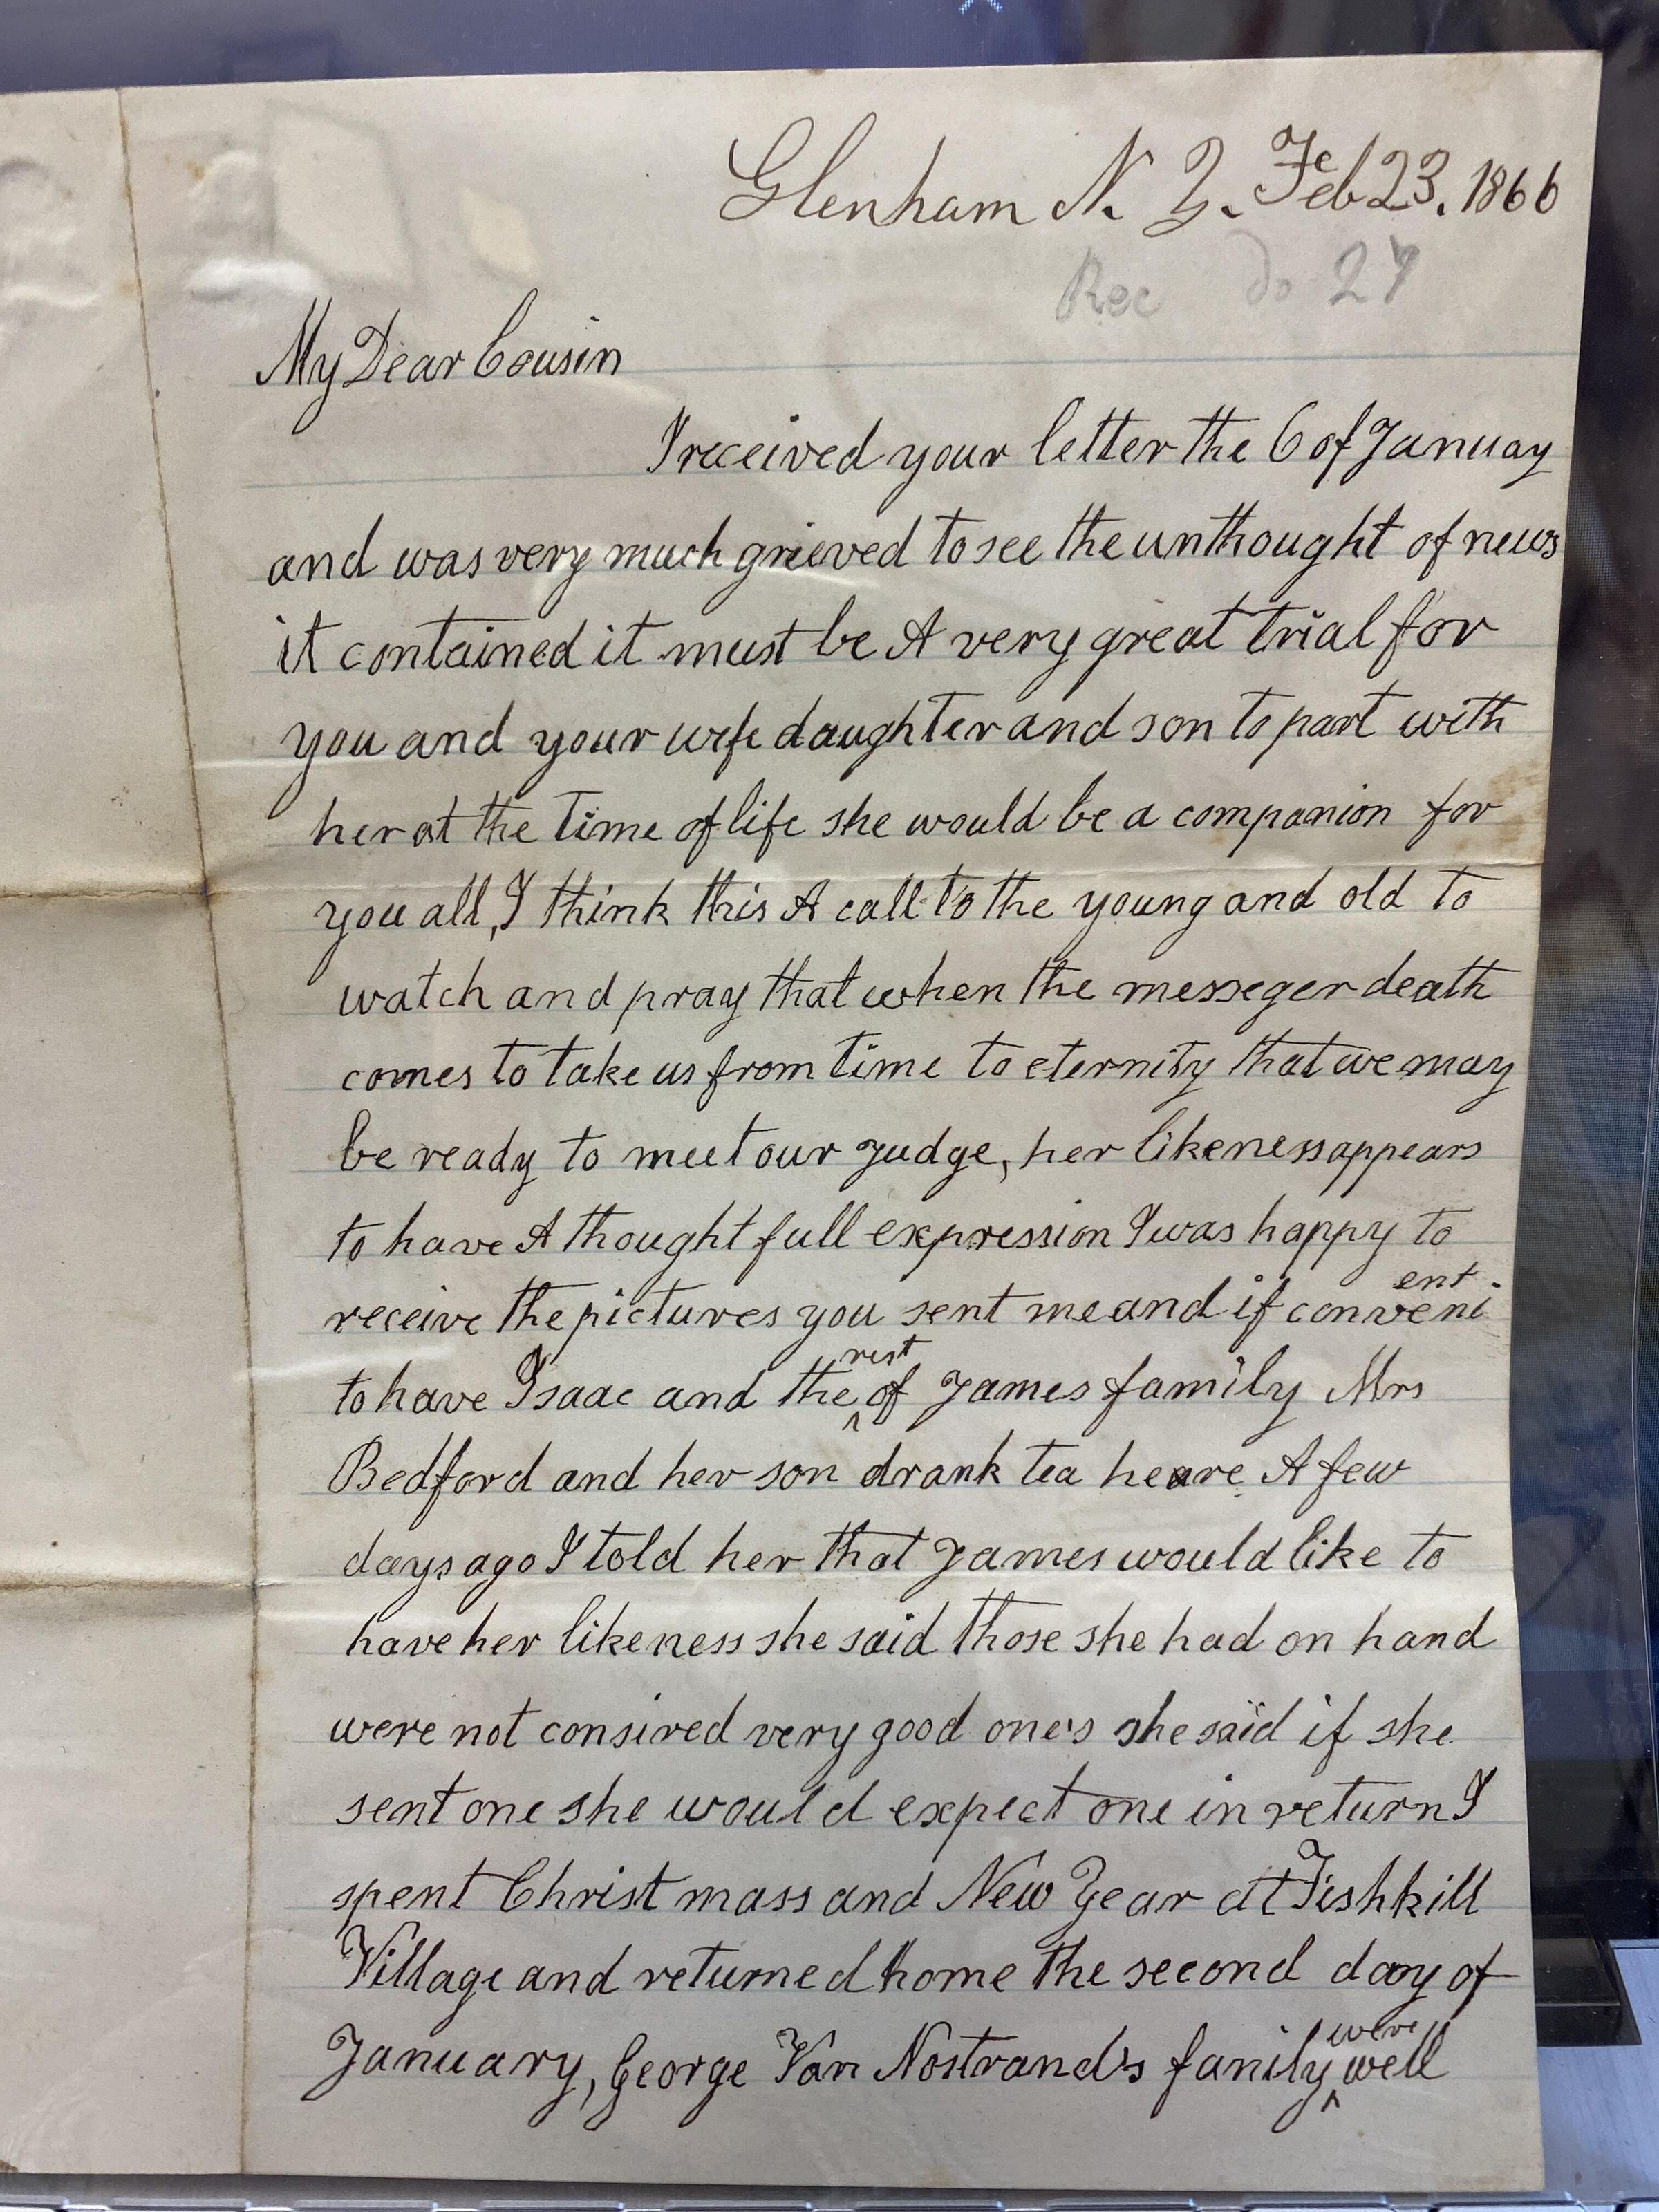 Glenham N. Y. Feb 23. 1866
Rec do 27
My Dear Cousin
I received your letter the 6 of Januay
and was very much grieved to see the unthought of news
it contained it must be A very great trial for
you and your wife daughter and son to part with
her at the time of life she would be a companion for
you all, I think this A call to the young and old to
watch and pray that when the messeger death
comes to take us from time to eternity that we may
be ready to meet our Judge, her likeness appears
to have A thought full expression I was happy to
receive the pictures you sent me and if convenient
to have Isaac and the rest of James family Mrs
Bedford and her son drank tea heare A few
days ago I told her that James would like to
have her likeness she said those she had on hand
were not consired very good one's she said if she
sent one she would expect one in return I
spent Christ mass and New Year at Fishkill
Village and returned home the second day of
January, George Van Nostrand's family were well